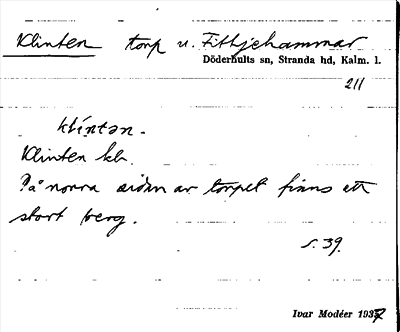 Klinten torp u. Fittjehammar
Döderhults sn, Stranda hd, Kalm. l.
211
klíntən.
Klinten kb.
På norra sidan av torpet finns ett
stort berg.
s. 39.
Ivar Modéer 1937